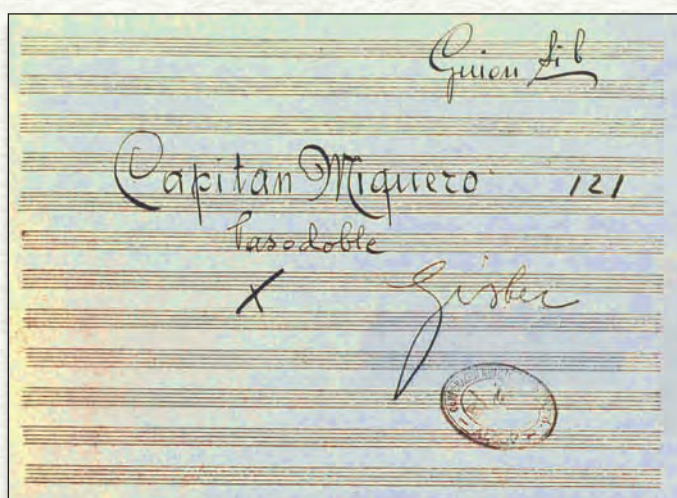 Guion Sib
Capitan Miquero 121
Pasodoble
X Gisber